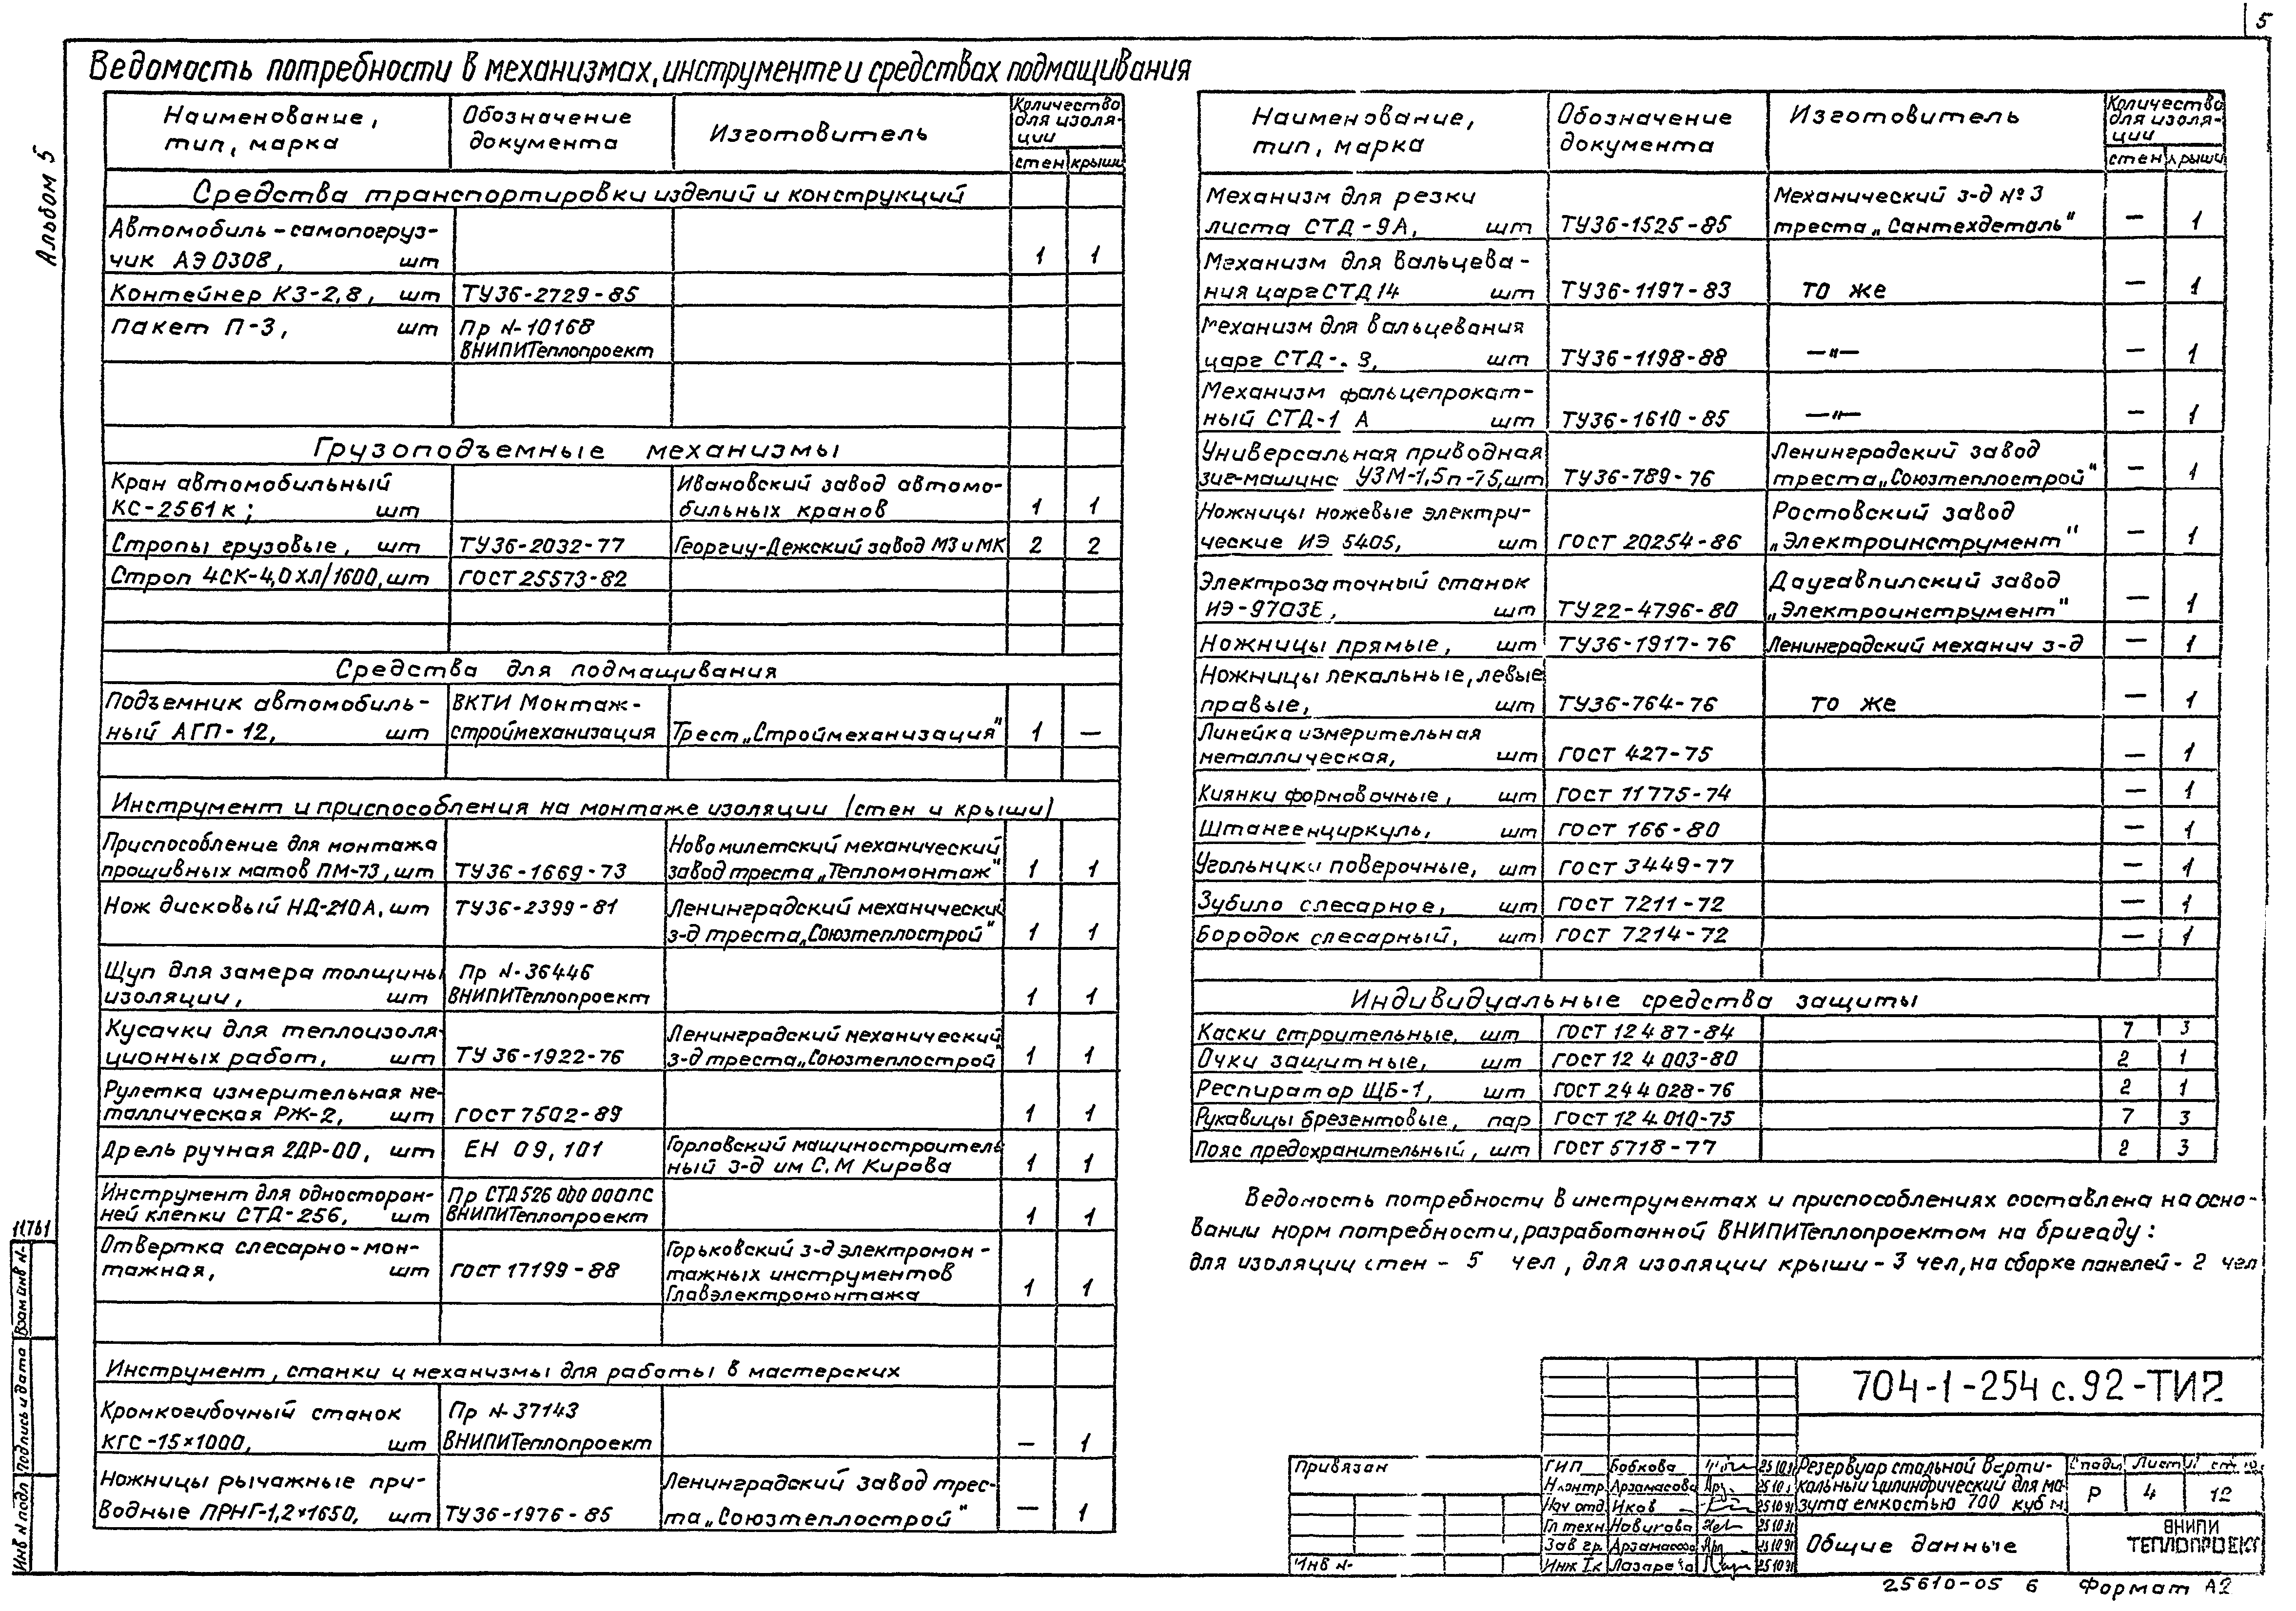 5
Альбом 5
Ведомость потребности в механизмах, инструменте и средствах подмащивания
Наименование, тип, марка | Обозначение документа | Изготовитель | Количество для изоляции стен | крыши
Средства транспортировки изделий и конструкций
Автомобиль-самопогруз-
чик АЭ0308, шт 1 1
Контейнер КЗ-2,8, шт ТУ36-2729-85
Пакет П-3, шт Пр №-10168
ВНИПИТеплопроект
Грузоподъемные механизмы
Кран автомобильный Ивановский завод автомо-
КС-2561к; шт бильных кранов 1 1
Стропы грузовые, шт ТУ36-2032-77 Георгиу-Дежский завод МЗиМК 2 2
Строп 4СК-4,0ХЛ/1600, шт ГОСТ 25573-82
Средства для подмащивания
Подъемник автомобиль- ВКТИ Монтаж-
ный АГП-12, шт строймеханизация Трест „Строймеханизация" 1 —
Инструмент и приспособления на монтаже изоляции (стен и крыши)
Приспособление для монтажа Новомилетский механический
прошивных матов ПМ-73, шт ТУ36-1669-73 завод треста „Тепломонтаж" 1 1
Нож дисковый НД-210А, шт ТУ36-2399-81 Ленинградский механический
з-д треста „Союзтеплострой" 1 1
Щуп для замера толщины Пр №-36446
изоляции, шт ВНИПИТеплопроект 1 1
Кусачки для теплоизоля- Ленинградский механический
ционных работ, шт ТУ 36-1922-76 з-д треста „Союзтеплострой" 1 1
Рулетка измерительная ме-
таллическая РЖ-2, шт ГОСТ 7502-89 1 1
Дрель ручная 2ДР-00, шт ЕН 09, 101 Горловский машиностроитель
ный з-д им С.М Кирова 1 1
Инструмент для односторон- Пр СТД 526 000 000ПС
ней клепки СТД-256, шт ВНИПИТеплопроект 1 1
Отвертка слесарно-мон- Горьковский з-д электромон-
тажная, шт ГОСТ 17199-88 тажных инструментов
Главэлектромонтажа 1 1
Инструмент, станки и механизмы для работы в мастерских
Кромкогибочный станок Пр №-37143
КГС-15×1000, шт ВНИПИТеплопроект — 1
Ножницы рычажные при- Ленинградский завод трес-
водные ПРНГ-1,2×1650, шт ТУ36-1976-85 та „Союзтеплострой" — 1
Наименование, тип, марка | Обозначение документа | Изготовитель | Количество для изоляции стен | крыши
Механизм для резки Механический з-д №3
листа СТД-9А, шт ТУ36-1525-85 треста „Сантехдеталь" — 1
Механизм для вальцева-
ния царг СТД 14 шт ТУ36-1197-83 то же — 1
Механизм для вальцевания
царг СТД- 3, шт ТУ36-1198-88 —"— — 1
Механизм фальцепрокат-
ный СТД-1 А шт ТУ36-1610-85 —"— — 1
Универсальная приводная Ленинградский завод
зиг-машина УЗМ-1,5п-75, шт ТУ36-789-76 треста „Союзтеплострой" — 1
Ножницы ножевые электри- Ростовский завод
ческие ИЭ 5405, шт ГОСТ 20254-86 „Электроинструмент" — 1
Электрозаточный станок Даугавпилский завод
ИЭ-9703Е, шт ТУ22-4796-80 „Электроинструмент" — 1
Ножницы прямые, шт ТУ36-1917-76 Ленинградский механич з-д — 1
Ножницы лекальные, левые
правые, шт ТУ36-764-76 то же — 1
Линейка измерительная
металлическая, шт ГОСТ 427-75 — 1
Киянки формовочные, шт ГОСТ 11775-74 — 1
Штангенциркуль, шт ГОСТ 166-80 — 1
Угольники поверочные, шт ГОСТ 3449-77 — 1
Зубило слесарное, шт ГОСТ 7211-72 — 1
Бородок слесарный, шт ГОСТ 7214-72 — 1
Индивидуальные средства защиты
Каски строительные, шт ГОСТ 12 4 87-84 7 3
Очки защитные, шт ГОСТ 12 4 003-80 2 1
Респиратор ЩБ-1, шт ГОСТ 24 4 028-76 2 1
Рукавицы брезентовые, пар ГОСТ 12 4 010-75 7 3
Пояс предохранительный, шт ГОСТ 5718-77 2 3
Ведомость потребности в инструментах и приспособлениях составлена на осно-
вании норм потребности, разработанной ВНИПИТеплопроектом на бригаду:
для изоляции стен - 5 чел, для изоляции крыши - 3 чел, на сборке панелей - 2 чел
11761
Взам инв №-
Подпись и дата
Инв № подл
704-1-254 с.92-ТИ2
Привязан
Инв №-
ГИП Бобкова 25 10 91
Н контр Арзамасова
Нач отд Иков 25 10 91
Гл техн Новикова 25 10 91
Зав гр. Арзамасова 25 10 91
Инж I к Лазарева 25 10 91
Резервуар стальной верти-
кальный цилиндрический для ма-
зута емкостью 700 куб м
Стадия Лист
Р 4 12
Общие данные
ВНИПИ
ТЕПЛОПРОЕКТ
25610-05 6 Формат А2